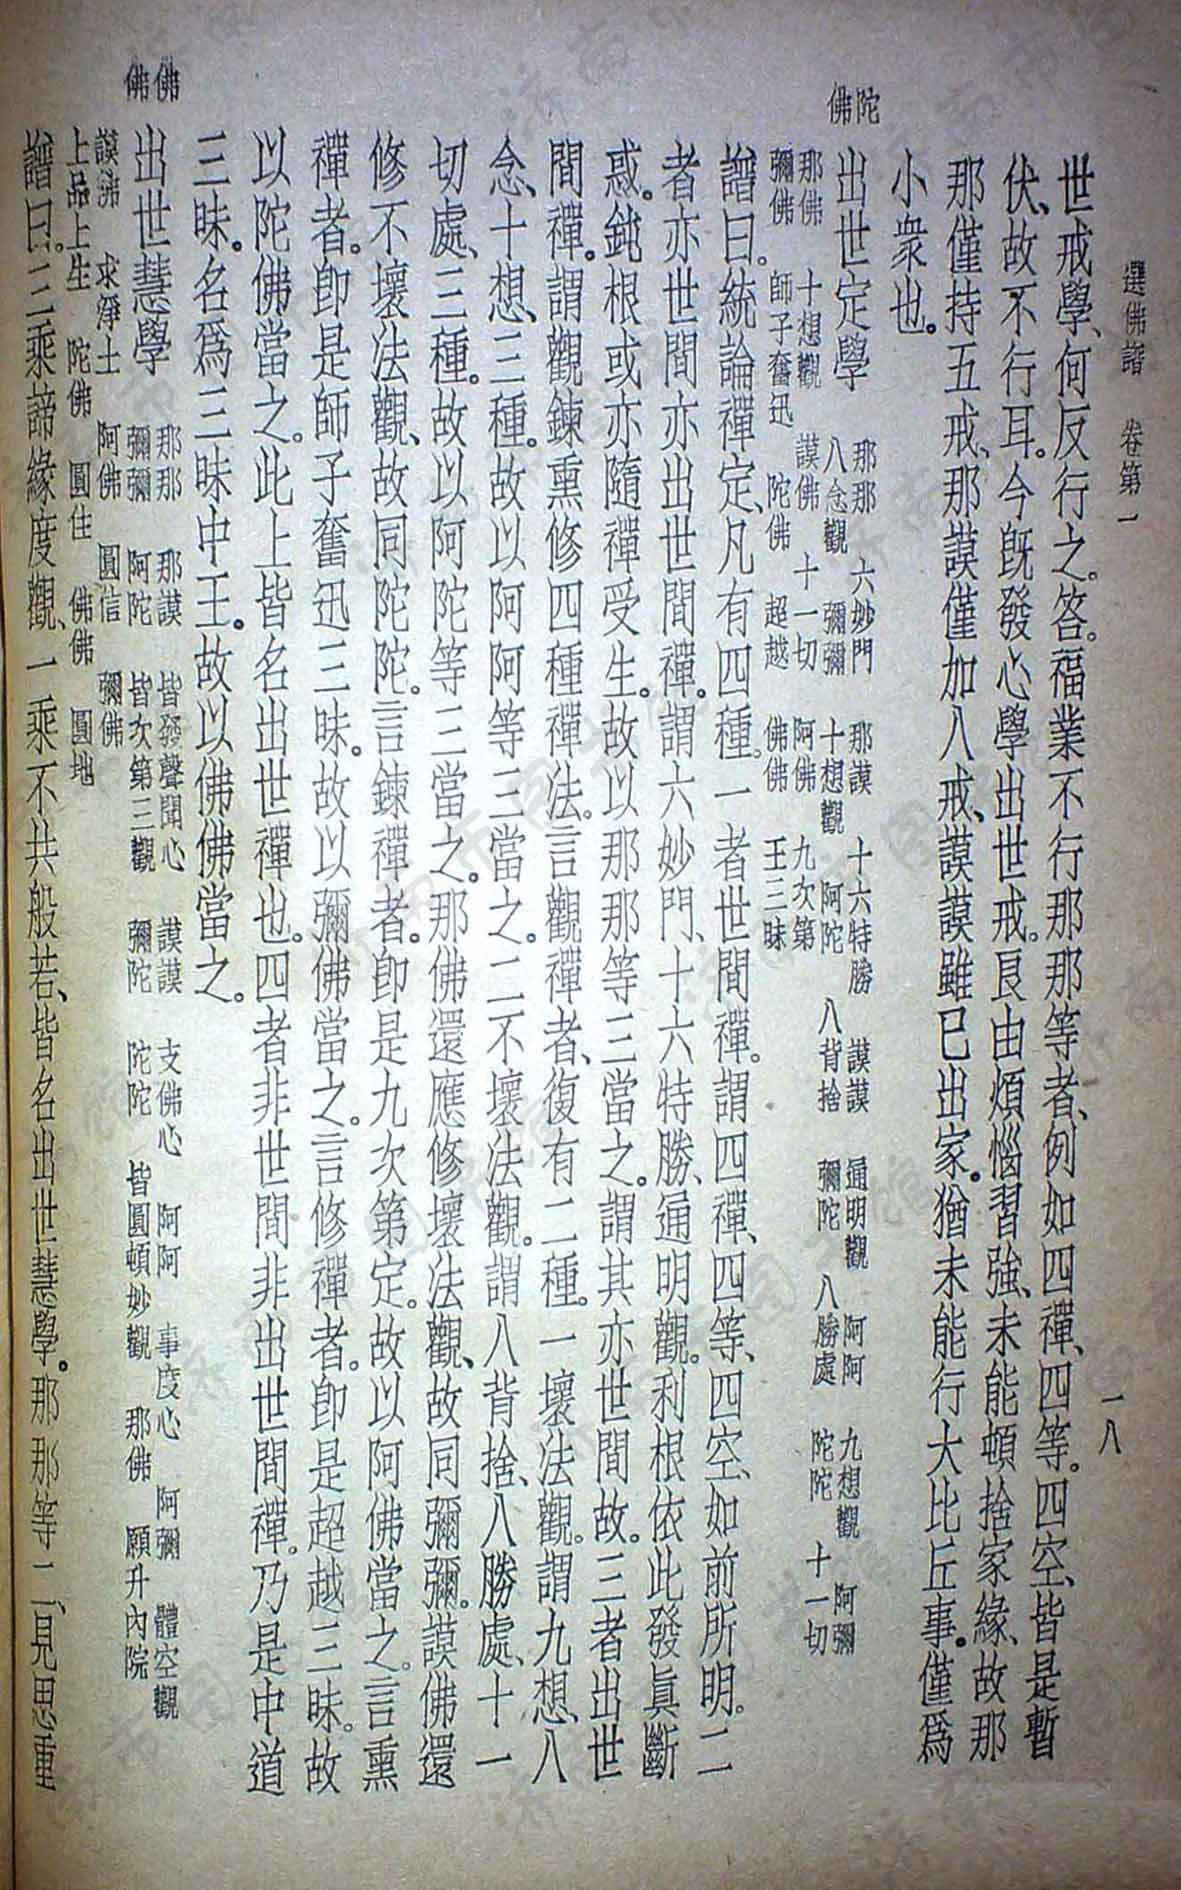 選佛譜　卷第一　一八
世戒學、何反行之。答。福業不行那那等者、例如四禪、四等。四空、皆是暫
伏、故不行耳。今旣發心學出世戒。良由煩惱習強、未能頓捨家緣、故那
那僅持五戒、那謨僅加八戒、謨謨雖已出家。猶未能行大比丘事。僅爲
小衆也。
陀佛
出世定學　那那　六妙門　那謨　十六特勝　謨謨　通明觀　阿阿　九想觀　阿彌
八念觀　彌彌　十想觀　阿陀　八背捨　彌陀　八勝處　陀陀　十一切
那佛　十想觀　謨佛　十一切　阿佛　九次第
彌佛　師子奮迅　陀佛　超越　佛佛　王三昧
譜曰。統論禪定、凡有四種。一者世間禪。謂四禪、四等、四空、如前所明。二
者亦世間亦出世間禪。謂六妙門、十六特勝、通明觀。利根依此發眞斷
惑。鈍根或亦隨禪受生。故以那那等三當之。謂其亦世間故。三者出世
間禪。謂觀鍊熏修四種禪法。言觀禪者、復有二種。一壞法觀。謂九想、八
念、十想、三種。故以阿阿等三當之。二不壞法觀。謂八背捨、八勝處、十一
切處、三種。故以阿陀等三當之。那佛還應修壞法觀、故同彌彌。謨佛還
修不壞法觀、故同陀陀。言鍊禪者。卽是九次第定。故以阿佛當之。言熏
禪者。卽是師子奮迅三昧。故以彌佛當之。言修禪者。卽是超越三昧。故
以陀佛當之。此上皆名出世禪也。四者非世間非出世間禪。乃是中道
三昧。名爲三昧中王。故以佛佛當之。
佛佛
出世慧學　那那　那謨　皆發聲聞心　謨謨　支佛心　阿阿　事度心　阿彌　體空觀
彌彌　阿陀　皆次第三觀　彌陀　陀陀　皆圓頓妙觀　那佛　願升內院
謨佛　求淨土　阿佛　圓信　彌佛
上品上生　陀佛　圓住　佛佛　圓地
譜曰。三乘諦緣度觀、一乘不共般若、皆名出世慧學。那那等二、見思重